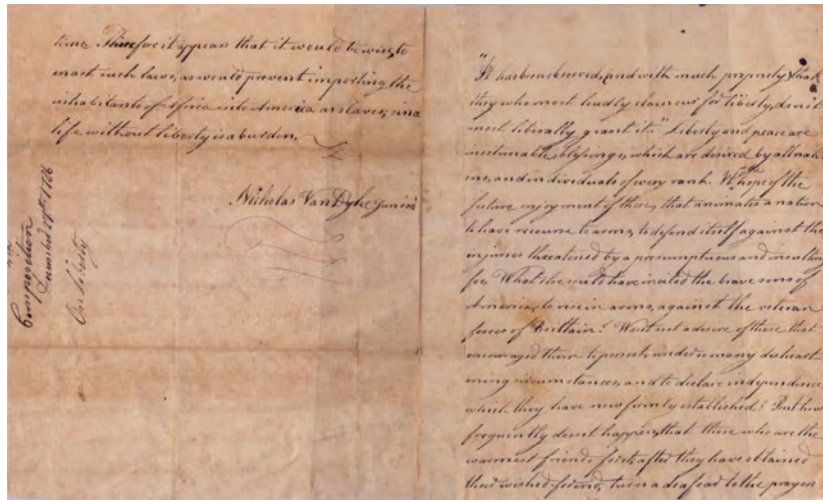 time. Therefore it appears that it would be wise, to
enact such laws, as would prevent importing the
inhabitants of Africa into America as slaves; since
life without liberty is a burden.
Nicholas Van Dyke Junior
Composition
December 29th 1786
On Liberty
"It has been observed, and with much propriety that
they who most loudly clamour for liberty, do not
most liberally grant it." Liberty and peace are
inestimable blessings, which are desired by all nati-
ons, and individuals of every rank. 'Tis the hope of the
future enjoyment of these, that animates a nation
to have recourse to arms, to defend itself against the
injuries threatened by a presumptuous and insulting
foe. What else could have incited the brave sons of
America, to rise in arms, against the veteran
forces of Brittain? Was it not a desire of these that
encouraged them to persist, under many disheart-
ening circumstances, and to declare independence
which they have now firmly established? But how
frequently does it happen, that those who are the
warmest friends for it, after they have obtained
their wished for end; turn a deaf ear to the prayers